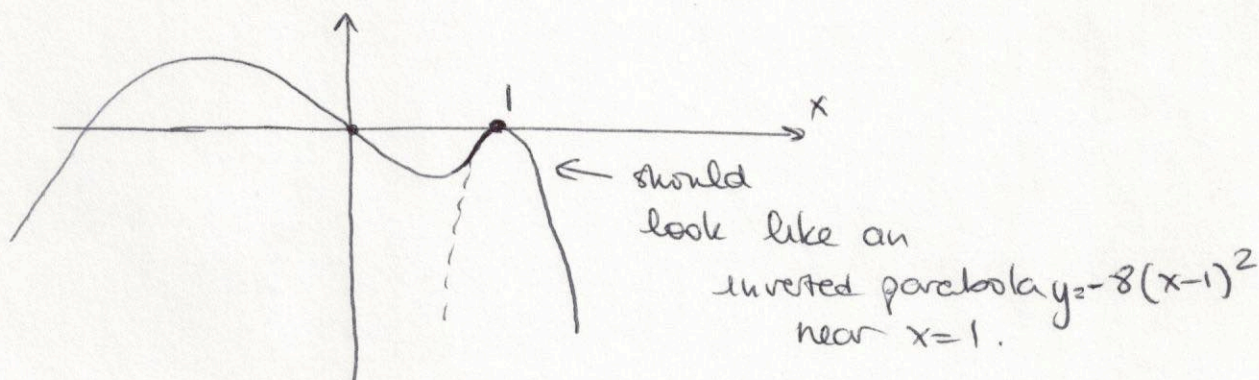 1
x
← should
look like an
inverted parabola y=-8(x-1)²
near x=1.